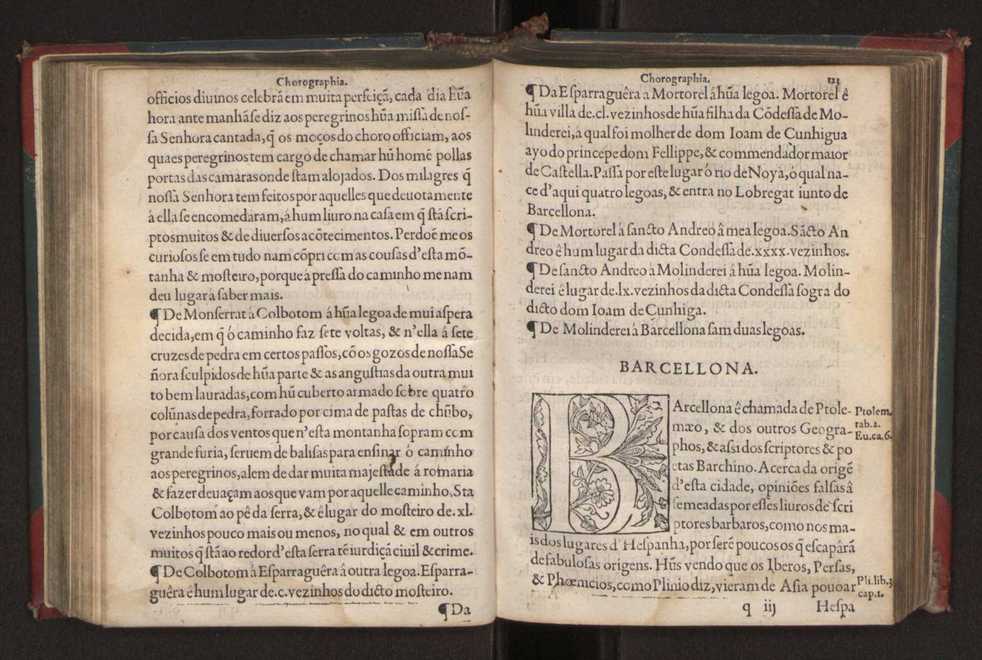 Chorographia.
officios diuinos celebrã em muita perfeiçã, cada dia hũa
hora ante manhã se diz aos peregrinos hũa missa de nos-
sa Senhora cantada, q̃ os moços do choro officiam, aos
quaes peregrinos tem cargo de chamar hũ homẽ pollas
portas das camaras onde stam alojados. Dos milagres q̃
nossa Senhora tem feitos por aquelles que deuotamente
à ella se encomedaram, â hum liuro na casa em q̃ stã scri-
ptos muitos & de diuersos acõtecimentos. Perdoẽ me os
curiosos se em tudo nam cõpri com as cousas d'esta mõ-
tanha & mosteiro, porque à pressa do caminho me nam
deu lugar à saber mais.
¶ De Monserrat à Colbotom â hũa legoa de mui aspera
decida, em q̃ ó caminho faz sete voltas, & n'ella â sete
cruzes de pedra em certos passos, cõ os gozos de nossa Se
ñora sculpidos de hũa parte & as angustias da outra mui
to bem lauradas, com hũ cuberto armado sobre quatro
colũnas de pedra, forrado por cima de pastas de chũbo,
por causa dos ventos que n'esta montanha sopram com
grande furia, seruem de balisas para ensinar ò caminho
aos peregrinos, alem de dar muita majestade á romaria
& fazer deuaçam aos que vam por aquelle caminho. Sta
Colbotom ao pê da serra, & ê lugar do mosteiro de. xl.
vezinhos pouco mais ou menos, no qual & em outros
muitos q̃ stã ao redor d'esta serra tẽ iurdiçã ciuil & crime.
¶ De Colbotom à Esparraguêra â outra legoa. Esparra-
guêra ê hum lugar de. c. vezinhos do dicto mosteiro.
¶ Da
Chorographia. 121
¶ Da Esparraguêra a Mortorel â hũa legoa. Mortorel ê
hũa villa de. cl. vezinhos de hũa filha da Cõdessa de Mo-
linderei, à qual foi molher de dom Ioam de Cunhigua
ayo do principe dom Fellippe, & commendador maior
de Castella. Passa por este lugar ò rio de Noya, ò qual na-
ce d'aqui quatro legoas, & entra no Lobregat iunto de
Barcellona.
¶ De Mortorel à sancto Andreo â mea legoa. Sãcto An
dreo ê hum lugar da dicta Condessa de. xxxx. vezinhos.
¶ De sancto Andreo à Molinderei â hũa legoa. Molin-
derei ê lugar de. lx. vezinhos da dicta Condessa sogra do
dicto dom Ioam de Cunhiga.
¶ De Molinderei à Barcellona sam duas legoas.
BARCELLONA.
BArcellona ê chamada de Ptole-
mæo, & dos outros Geogra-
phos, & assi dos scriptores & po
etas Barchino. Acerca da origẽ
d'esta cidade, opiniões falsas â
semeadas por esses liuros de scri
ptores barbaros, como nos ma-
is dos lugares d'Hespanha, por serẽ poucos os q̃ escapârã
de fabulosas origens. Hũs vendo que os Iberos, Persas,
& Phœnicios, como Plinio diz, vieram de Asia pouoar
Ptolem.
tab. 2.
Eu. ca. 6.
Pli. lib. 3
cap. 1.
q iij Hespa